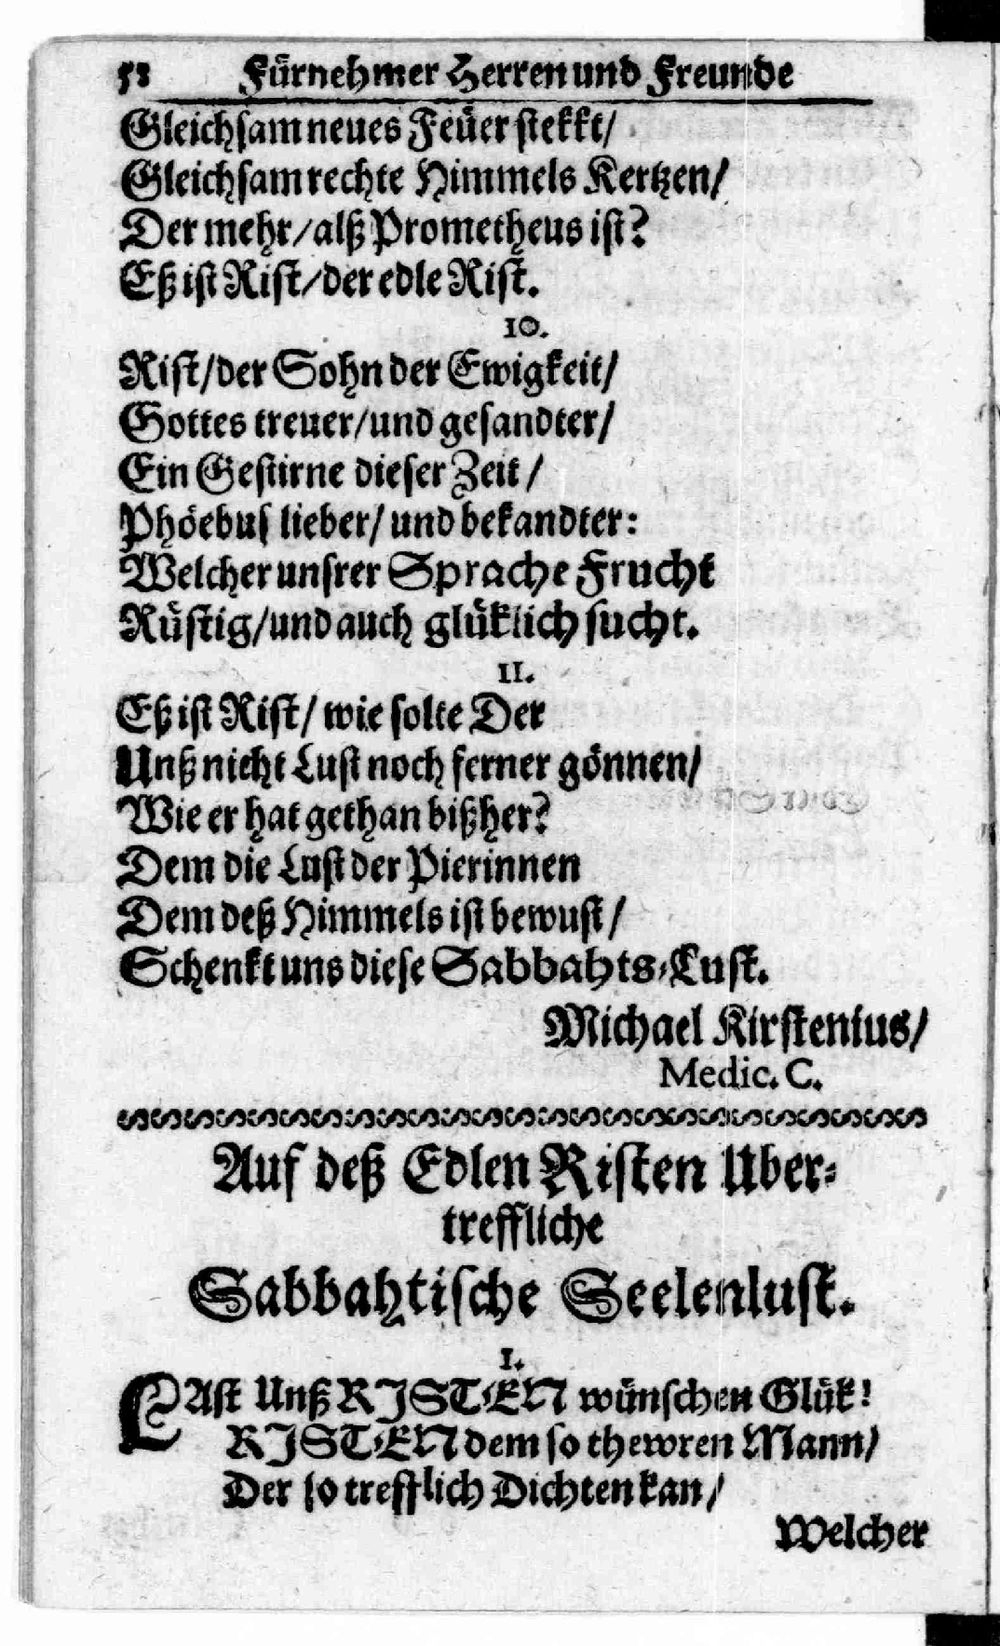 58 Fürnehmer Herren und Freunde
Gleichsam neues Feüer stekkt/
Gleichsam rechte Himmels Kertzen/
Der mehr/alß Prometheus ist?
Eß ist Rist/der edle Rist.
10.
Rist/der Sohn der Ewigkeit/
Gottes treuer/und gesandter/
Ein Gestirne dieser Zeit/
Phöebus lieber/und bekandter:
Welcher unsrer Sprache Frucht
Rüstig/und auch glüklich sucht.
11.
Eß ist Rist/wie solte Der
Unß nicht Lust noch ferner gönnen/
Wie er hat gethan bißher?
Dem die Lust der Pierinnen
Dem deß Himmels ist bewust/
Schenkt uns diese Sabbahts-Lust.
Michael Kirstenius/
Medic. C.
Auf deß Edlen Risten Uber-
treffliche
Sabbahtische Seelenlust.
1.
LAst Unß RISTEN wünschen Glük!
RISTEN dem so thewren Mann/
Der so trefflich Dichten kan/
Welcher